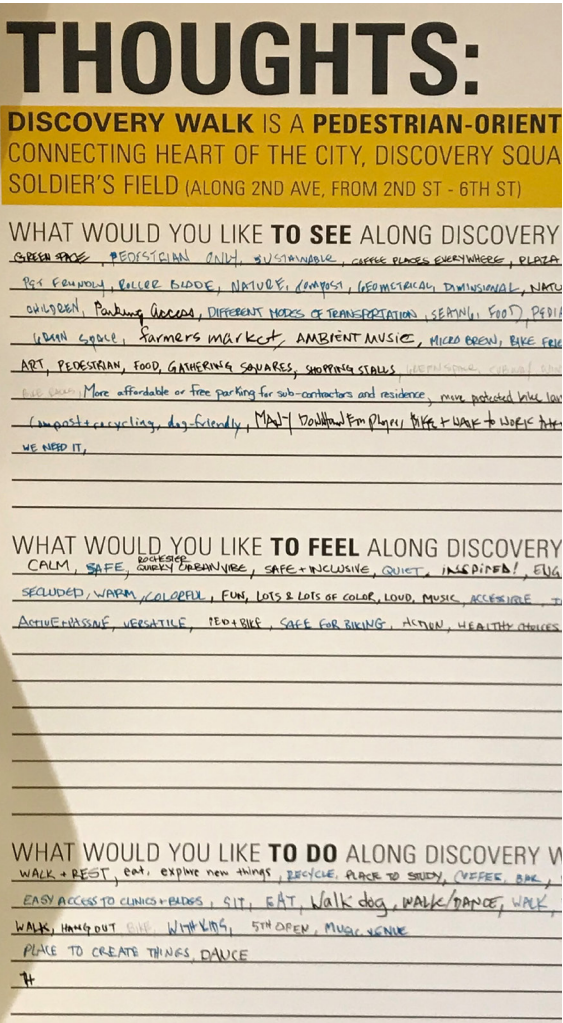 THOUGHTS:
DISCOVERY WALK IS A PEDESTRIAN-ORIENT
CONNECTING HEART OF THE CITY, DISCOVERY SQUA
SOLDIER'S FIELD (ALONG 2ND AVE, FROM 2ND ST - 6TH ST)
WHAT WOULD YOU LIKE TO SEE ALONG DISCOVERY
GREEN SPACE, PEDESTRIAN ONLY, SUSTAINABLE, COFFEE PLACES EVERYWHERE, PLAZA
PET FRIENDLY, ROLLER BLADE, NATURE, COMPOST, GEOMETRICAL, DIMENSIONAL, NATU
CHILDREN, Parking Access, DIFFERENT MODES OF TRANSPORTATION, SEATING, FOOD, PEDIA
GREEN SPACE, farmers market, AMBIENT MUSIC, MICRO BREW, BIKE FRIE
ART, PEDESTRIAN, FOOD, GATHERING SQUARES, SHOPPING STALLS GREENSPACE,
More affordable or free parking for sub-contractors and residence, more protected bike lan
Compost + recycling, dog-friendly, MANY Downtown Employees BIKE + WALK to WORK
WE NEED IT,
WHAT WOULD YOU LIKE TO FEEL ALONG DISCOVERY
ROCHESTER
CALM, SAFE, QUIRKY URBAN VIBE, SAFE + INCLUSIVE, QUIET, INSPIRED!, ENG
SECLUDED, WARM, COLORFUL, FUN, LOTS & LOTS OF COLOR, LOUD, MUSIC, ACCESSIBLE,
ACTIVE + PASSIVE, VERSATILE, PED + BIKE, SAFE FOR BIKING, ACTION, HEALTHY CHOICES
WHAT WOULD YOU LIKE TO DO ALONG DISCOVERY W
WALK + REST, eat, explore new things, RECYCLE, PLACE TO STUDY, COFFEE, BAR,
EASY ACCESS TO CLINICS + BLDGS, SIT, EAT, Walk dog, WALK/DANCE, WALK,
WALK, HANG OUT BIKE, WITH KIDS, 5TH OPEN, MUSIC VENUE
PLACE TO CREATE THINGS, DANCE